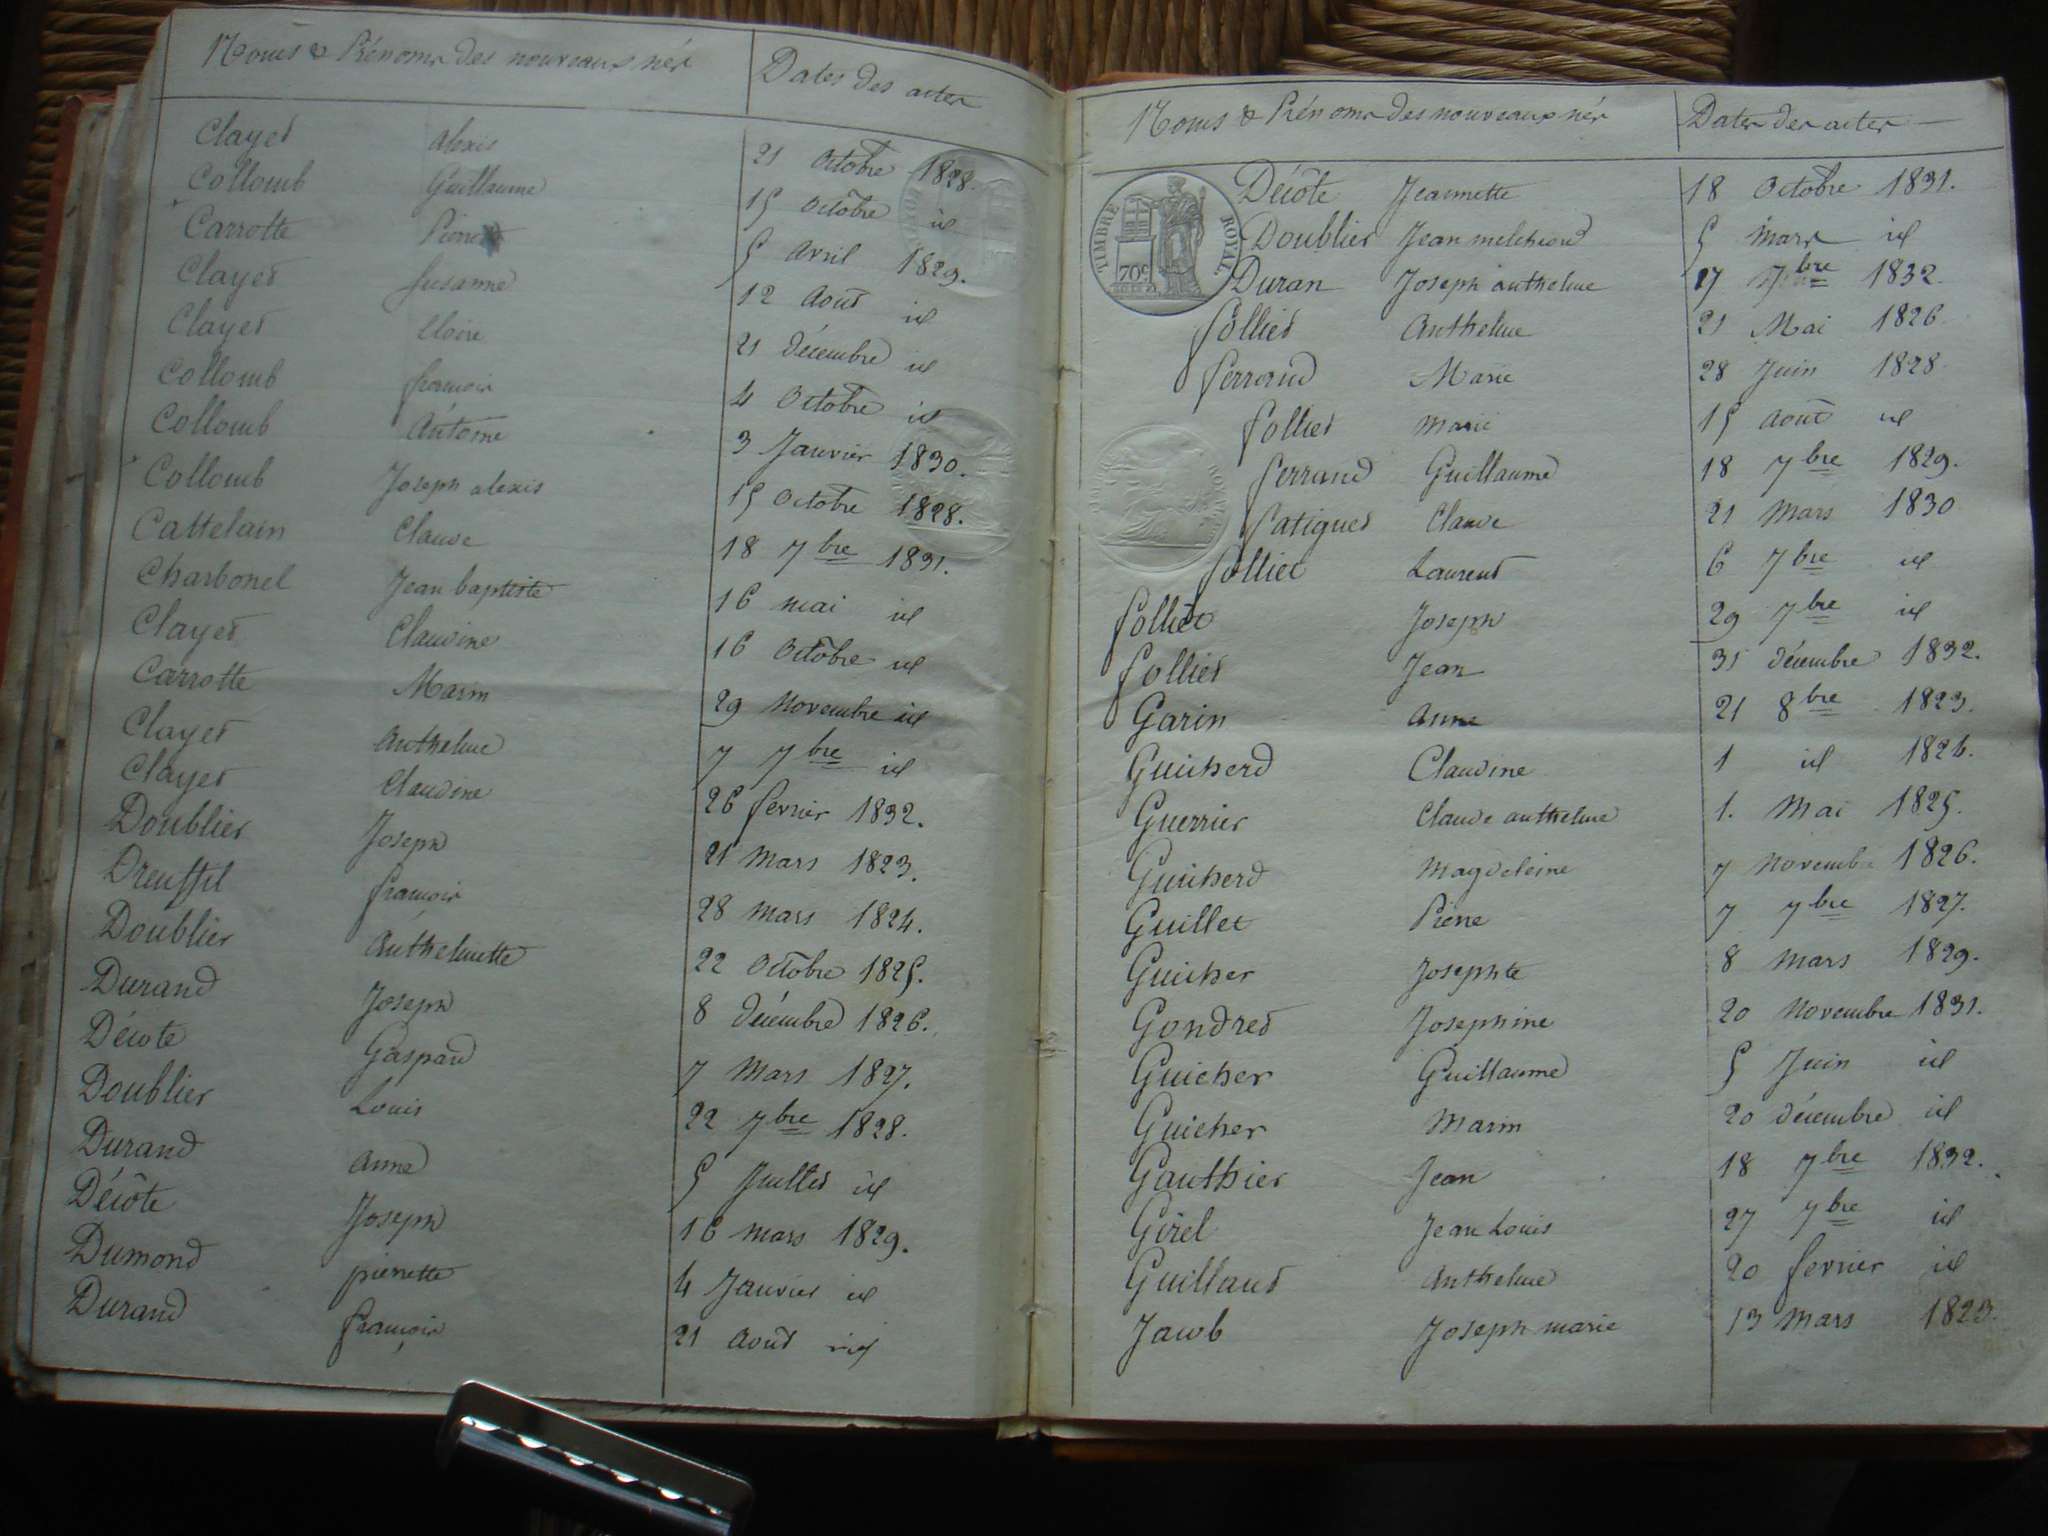 Noms & Prénoms des nouveaux nés Dates des actes
Clayet alexis 21 Octobre 1828.
Collomb Guillaume 15 Octobre id
Carrotte Pierre 5 Avril 1829.
Clayet susanne 12 Aout id
Clayet Claire 21 décembre id
Collomb françois 4 Octobre id
Collomb Antoine 3 Janvier 1830.
Collomb Joseph alexis 15 Octobre 1828.
Cattelain Claude 18 7bre 1831.
Charbonel Jean baptiste 16 mai id
Clayet Claudine 16 Octobre id
Carrotte Marin 29 Novembre id
Clayet Anthelme 7 7bre id
Clayet Claudine 26 fevrier 1832.
Doublier Joseph 21 Mars 1823.
Dreuffil françois 28 mars 1824.
Doublier Anthelmette 22 Octobre 1825.
Durand Joseph 8 décembre 1826.
Décote Gaspard 7 Mars 1827.
Doublier Louis 22 7bre 1828.
Durand Anne 5 Juillet id
Décôte Joseph 16 mars 1829.
Dumond pierrette 4 Janvier id
Durand françois 21 Aout id
Noms & Prénoms des nouveaux nés Dates des actes
TIMBRE ROYAL
70c
Décôte Jeannette 18 Octobre 1831.
Doublier Jean melchiord 5 Mars id
Duran Joseph anthelme 27 7bre 1832.
folliet Anthelme 21 Mai 1826
ferrand Marie 28 Juin 1828
folliet Marie 15 Aout id
ferrand Guillaume 18 7bre 1829.
fatiguet Claude 21 Mars 1830
folliet Laurent 6 7bre id
folliet Joseph 29 7bre id
folliet Jean 31 décembre 1832.
Garin Anne 21 8bre 1823.
Guicherd Claudine 1 id 1824.
Guerrier Claude anthelme 1. Mai 1825.
Guicherd Magdeleine 7 Novembre 1826.
Guillet Pierre 7 7bre 1827.
Guicher Josephte 8 Mars 1829.
Gondret Josephine 20 Novembre 1831.
Guicher Guillaume 5 Juin id
Guicher Marin 20 décembre id
Gauthier Jean 18 7bre 1832.
Girel Jean Louis 27 7bre id
Guillaud Anthelme 20 fevrier id
Jacob Joseph marie 13 Mars 1823.